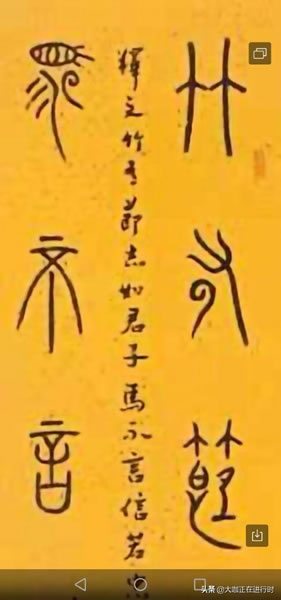 竹有節
釋文竹有節志如君子馬不言信若
馬不言
头条 @大咖正在进行时